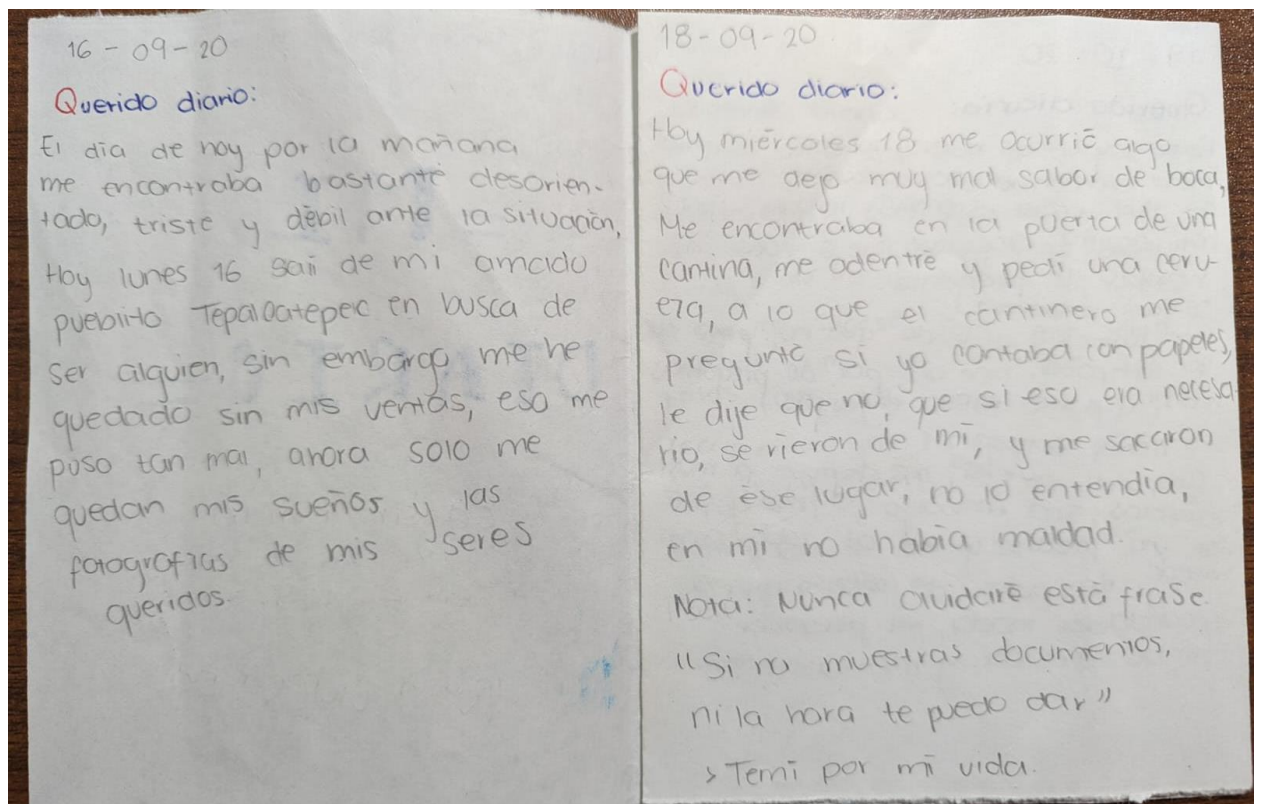 16-09-20
Querido diario:
El día de hoy por la mañana
me encontraba bastante desorien-
tado, triste y débil ante la situación,
Hoy lunes 16 sali de mi amado
pueblito Tepalcatepec en busca de
ser alguien, sin embargo me he
quedado sin mis ventas, eso me
puso tan mal, ahora solo me
quedan mis sueños y las
fotografias de mis seres
queridos.
18-09-20
Querido diario:
Hoy miércoles 18 me ocurrió algo
que me dejo muy mal sabor de boca,
Me encontraba en la puerta de una
cantina, me adentré y pedí una cerv-
eza, a lo que el cantinero me
preguntó si yo contaba con papeles,
le dije que no, que si eso era necesa
rio, se rieron de mí, y me sacaron
de ése lugar, no lo entendía,
en mi no había maldad.
Nota: Nunca olvidaré está frase.
"Si no muestras documentos,
ni la hora te puedo dar"
> Temí por mi vida.